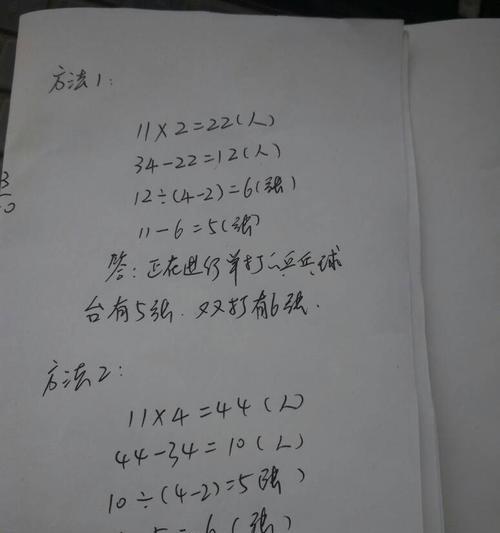 方法1:
11×2=22(人)
34-22=12(人)
12÷(4-2)=6(张)
11-6=5(张)
答:正在进行单打的乒乓球
台有5张.双打有6张.
方法2:
11×4=44(人)
44-34=10(人)
10÷(4-2)=5(张)
5=6(张)